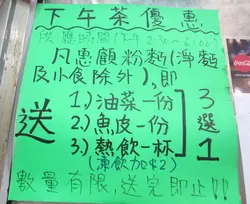 下午茶優惠
供應時間(下午2:30-6:00)
凡惠顧粉麵(淨麵
及小食除外),即
送
1.)油菜一份
2.)魚皮一份
3.)熱飲一杯
(凍飲加$2)
3
選
1
數量有限,送完即止!!